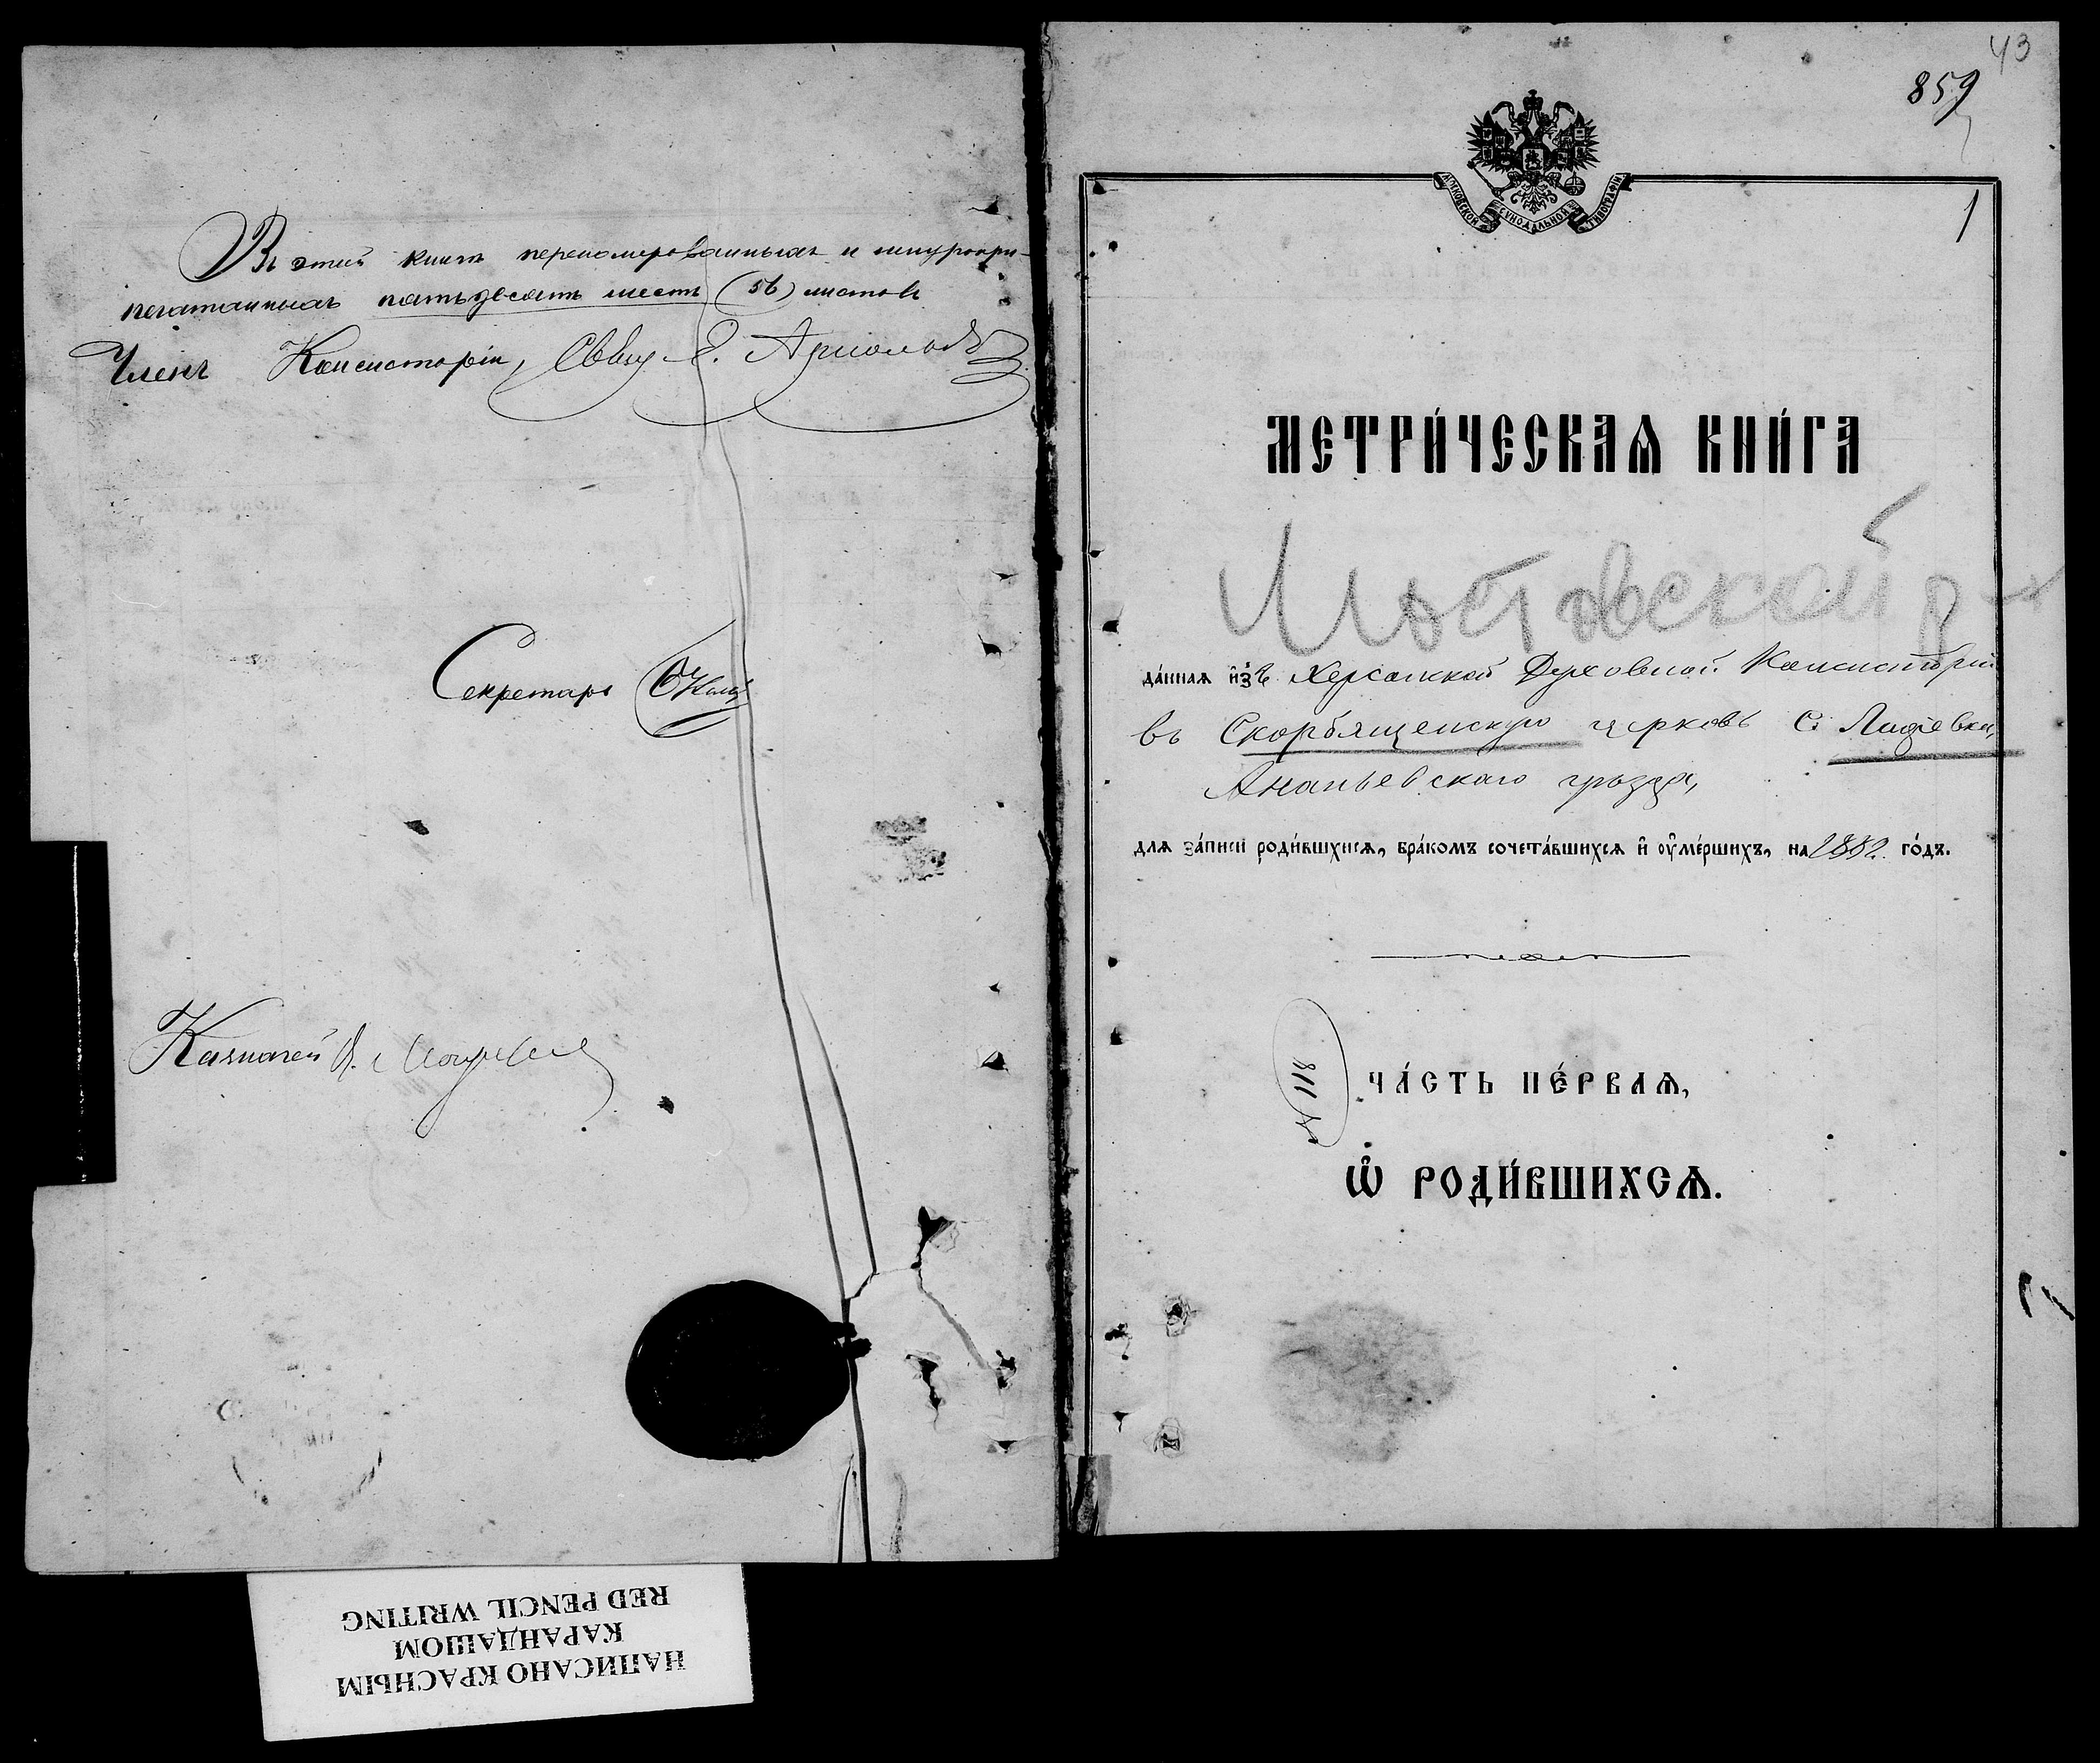 Въ этой книгѣ переномерованныхъ и шнуропри-
печатанныхъ пятьдесятъ шесть (56) листовъ
Членъ Консисторіи, Свящ. Е.
Секретарь
Казначей
НАПИСАНО КРАСНЫМ
КАРАНДАШОМ
RED PENCIL WRITING
43
859
1
МОСКОВСКОЙ СѴНОДАЛЬНОЙ ТИПОГРАФІИ
МЕТРИ́ЧЕСКАѦ КНИ́ГА
да́нная и҆зъ Херсонской Духовной Консисторіи
въ Скорбященскую церковь С.
Ананьевскаго уѣзда,
для за́писи роди́вшихся, бра́комъ сочета́вшихся и҆ оу҆ме́ршихъ, на 1882 го́дъ.
№ 118
ЧА́СТЬ ПЕ́РВАѦ,
Ѡ҆ РОДИ́ВШИХСѦ.